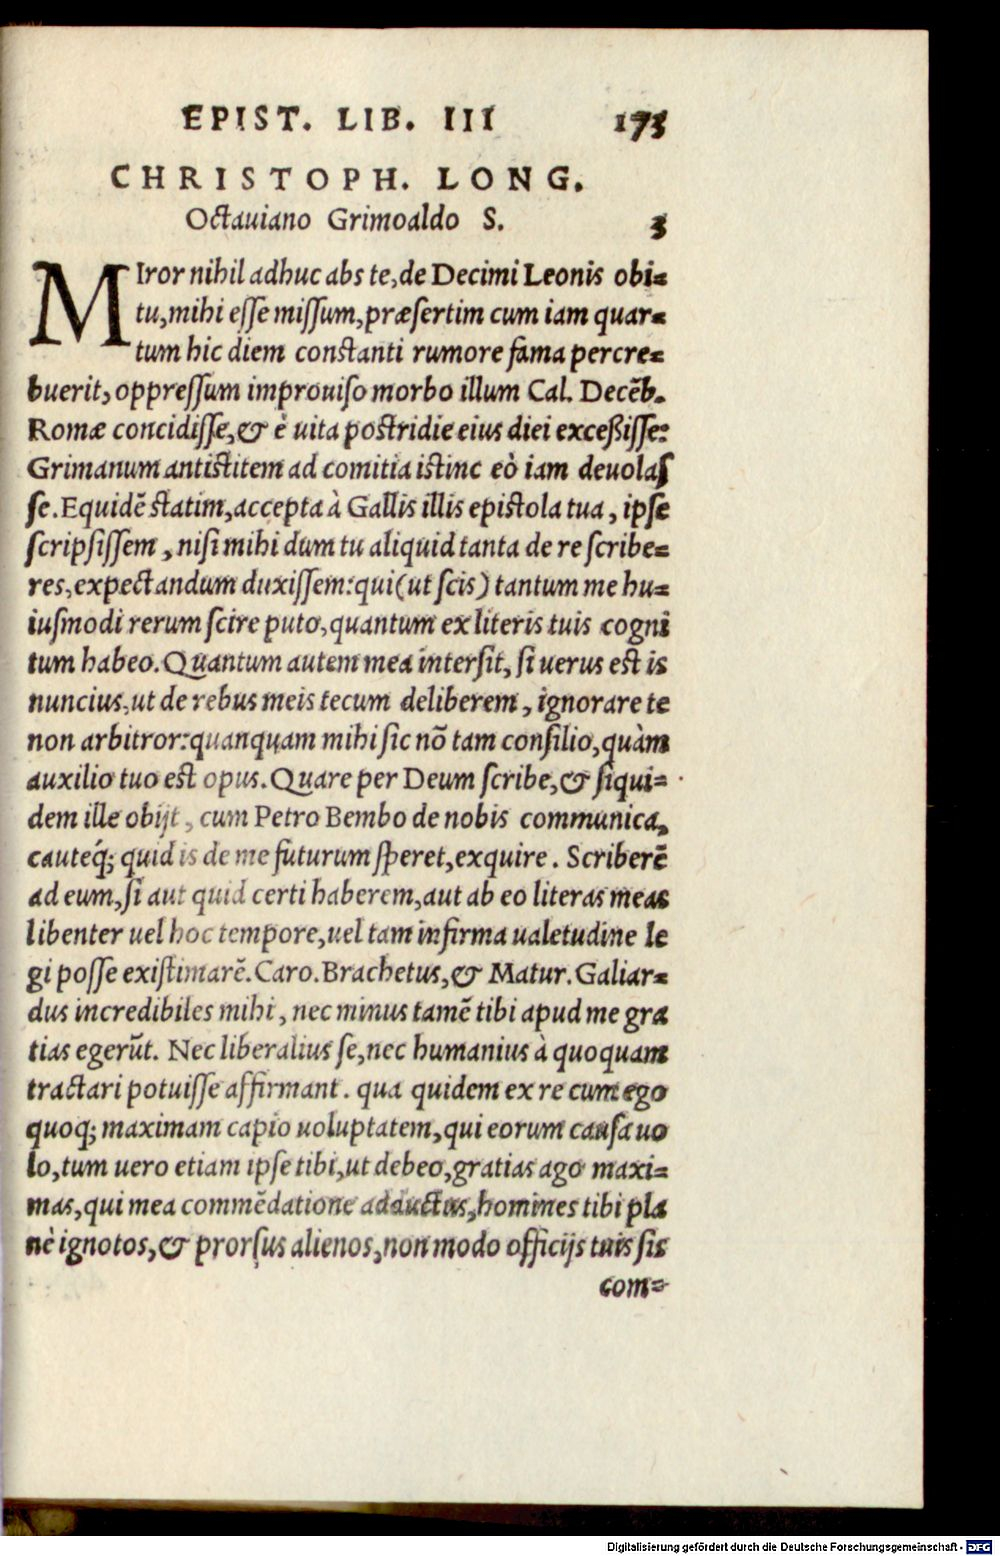 EPIST. LIB. III 173
CHRISTOPH. LONG.
Octauiano Grimoaldo S. 3
MIror nihil adhuc abs te, de Decimi Leonis obi=
tu, mihi eſſe miſſum, præſertim cum iam quar=
tum hic diem conſtanti rumore fama percre=
buerit, oppreſſum improuiſo morbo illum Cal. Decẽb.
Romæ concidiſſe, & è uita poſtridie eius diei exceßiſſe:
Grimanum antiſtitem ad comitia iſtinc eò iam deuolaſ
ſe. Equidẽ ſtatim, accepta à Gallis illis epiſtola tua, ipſe
ſcripſiſſem, niſi mihi dum tu aliquid tanta de re ſcribe=
res, expectandum duxiſſem: qui (ut ſcis) tantum me hu=
iuſmodi rerum ſcire puto, quantum ex literis tuis cogni
tum habeo. Quantum autem mea interſit, ſi uerus eſt is
nuncius, ut de rebus meis tecum deliberem, ignorare te
non arbitror: quanquam mihi ſic nõ tam conſilio, quàm
auxilio tuo eſt opus. Quare per Deum ſcribe, & ſiqui=
dem ille obijt, cum Petro Bembo de nobis communica,
cauteq́; quid is de me futurum ſperet, exquire. Scriberẽ
ad eum, ſi aut quid certi haberem, aut ab eo literas meas
libenter uel hoc tempore, uel tam infirma ualetudine le
gi poſſe exiſtimarẽ. Caro. Brachetus, & Matur. Galiar=
dus incredibiles mihi, nec minus tamẽ tibi apud me gra
tias egerũt. Nec liberalius ſe, nec humanius à quoquam
tractari potuiſſe affirmant. qua quidem ex re cum ego
quoq; maximam capio uoluptatem, qui eorum cauſa uo
lo, tum uero etiam ipſe tibi, ut debeo, gratias ago maxi=
mas, qui mea commẽdatione adductus, homines tibi pla
nè ignotos, & prorſus alienos, non modo officijs tuis ſis
com=
Digitalisierung gefördert durch die Deutsche Forschungsgemeinschaft - DFG